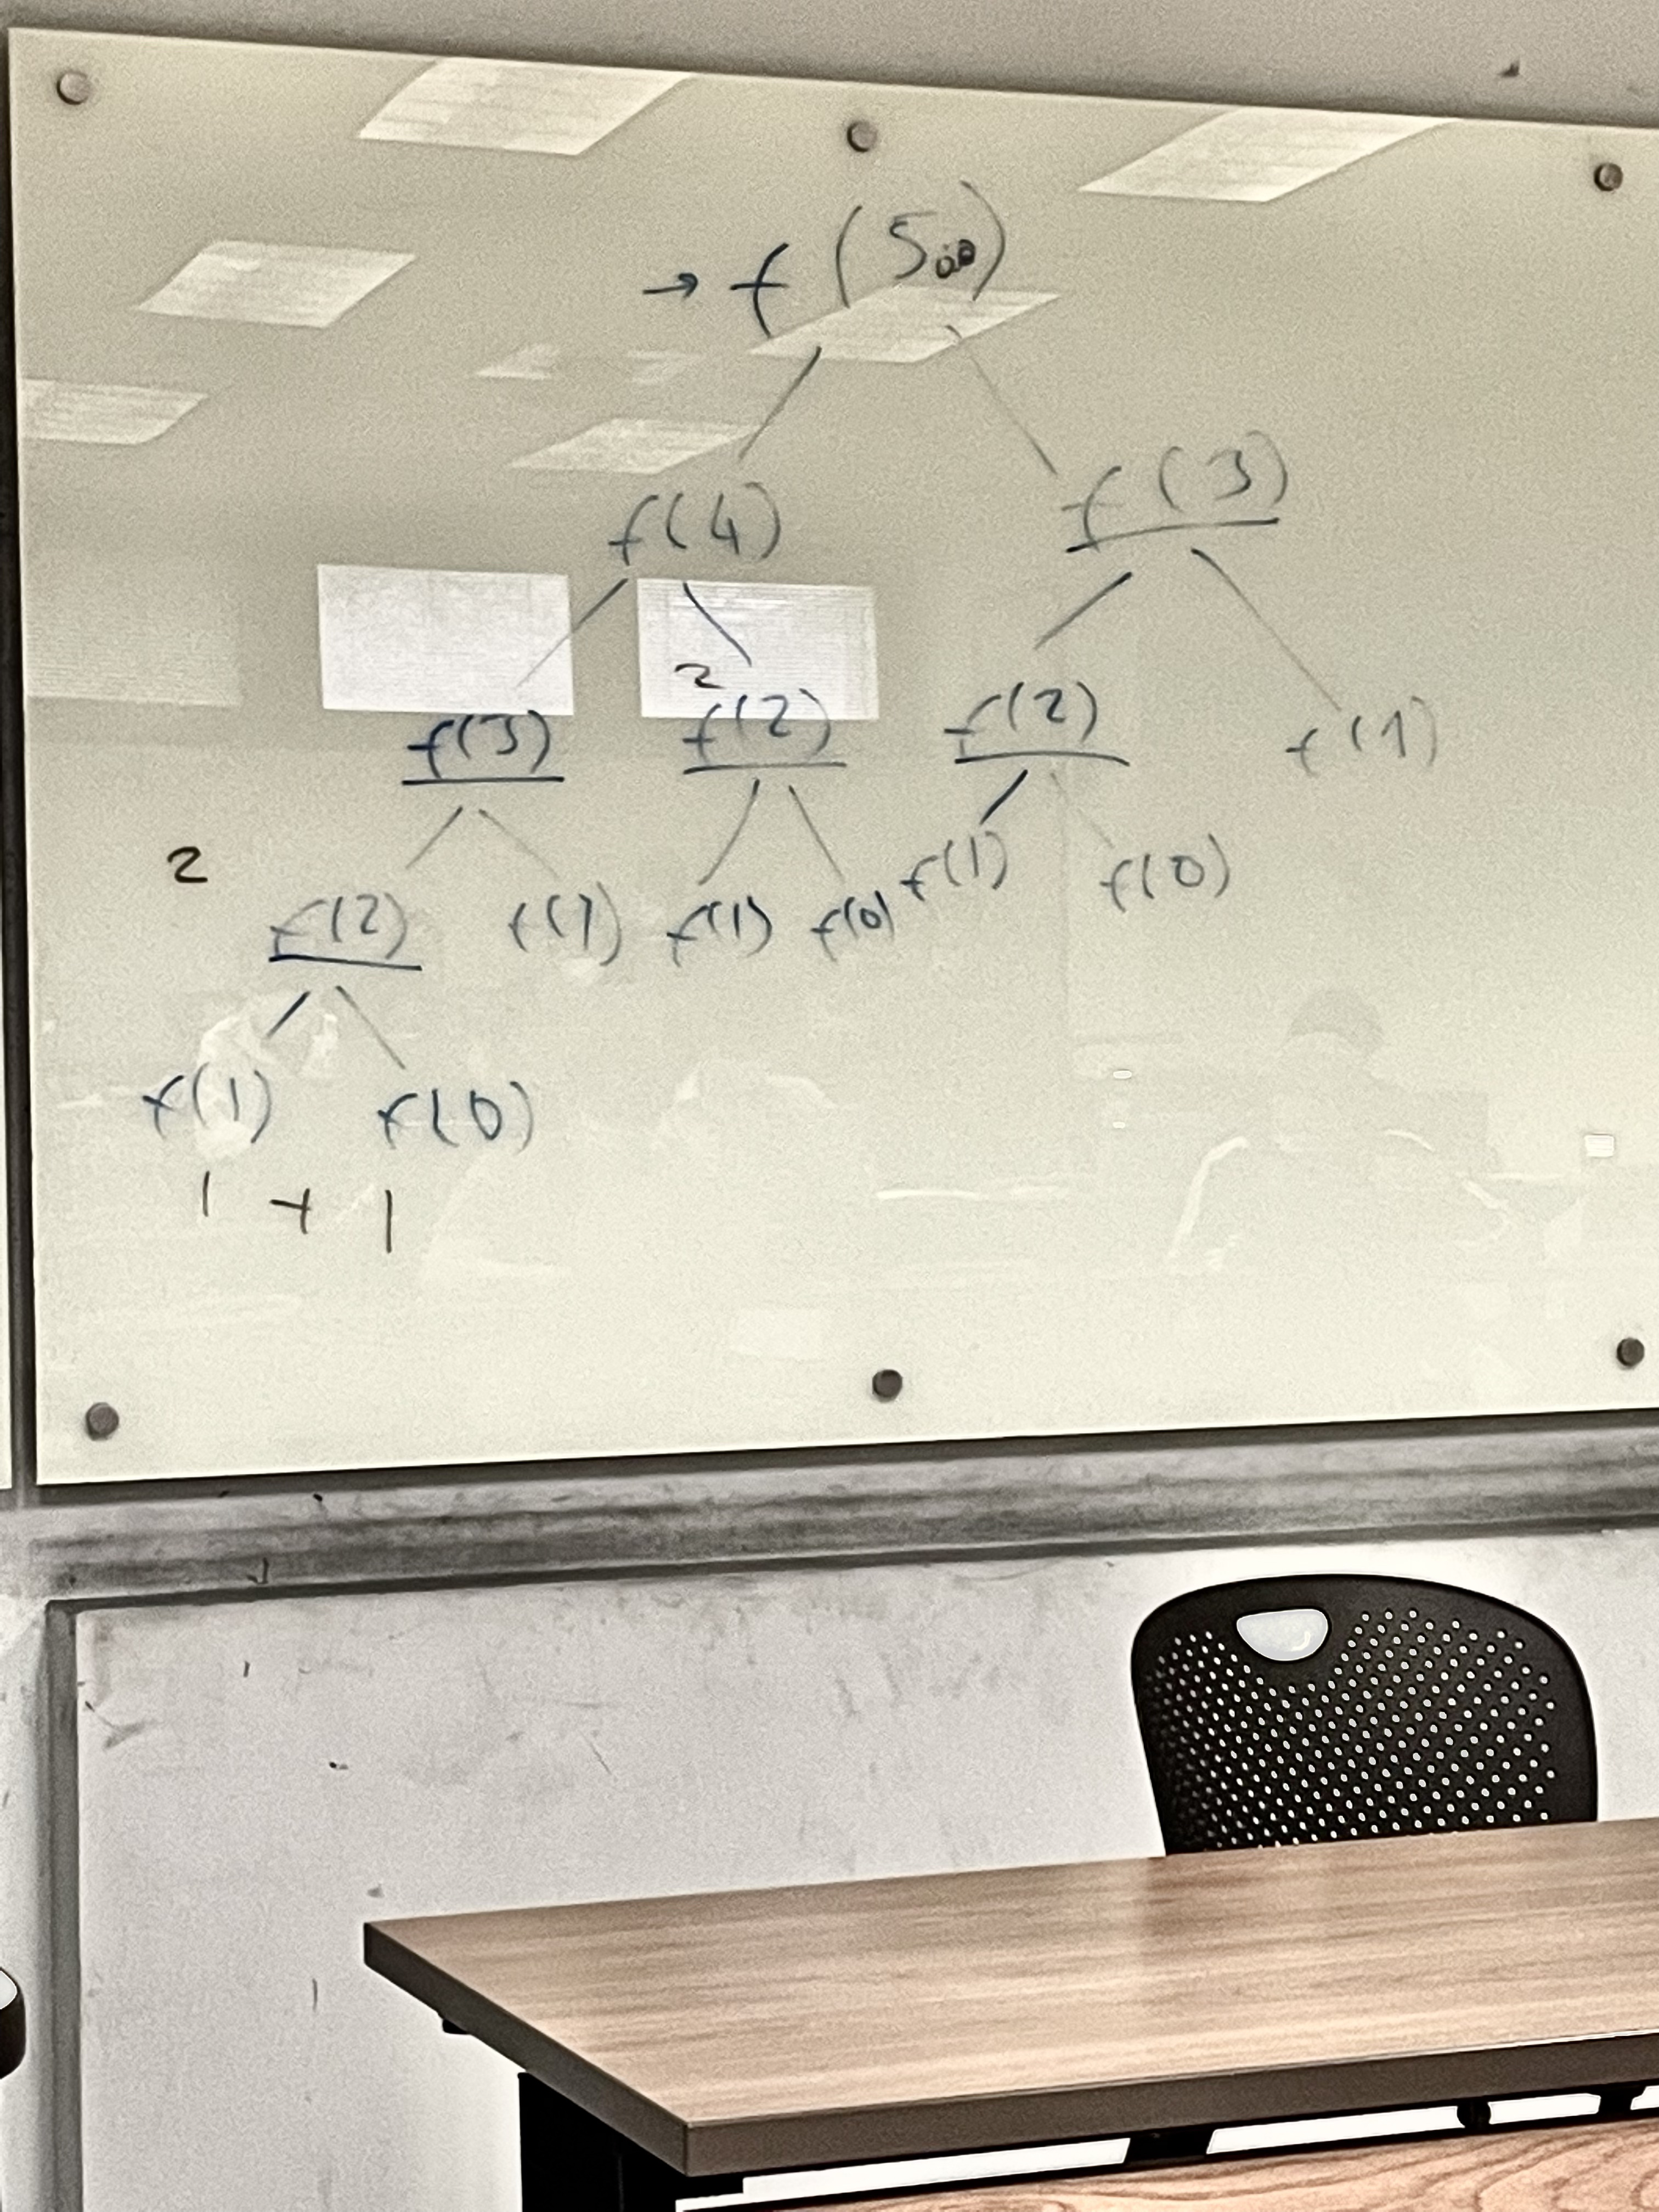 → f(500)
f(4) f(3)
2
f(3) f(2) f(2) f(1)
2
f(2) f(1) f(1) f(0) f(1) f(0)
f(1) f(0)
1 + 1